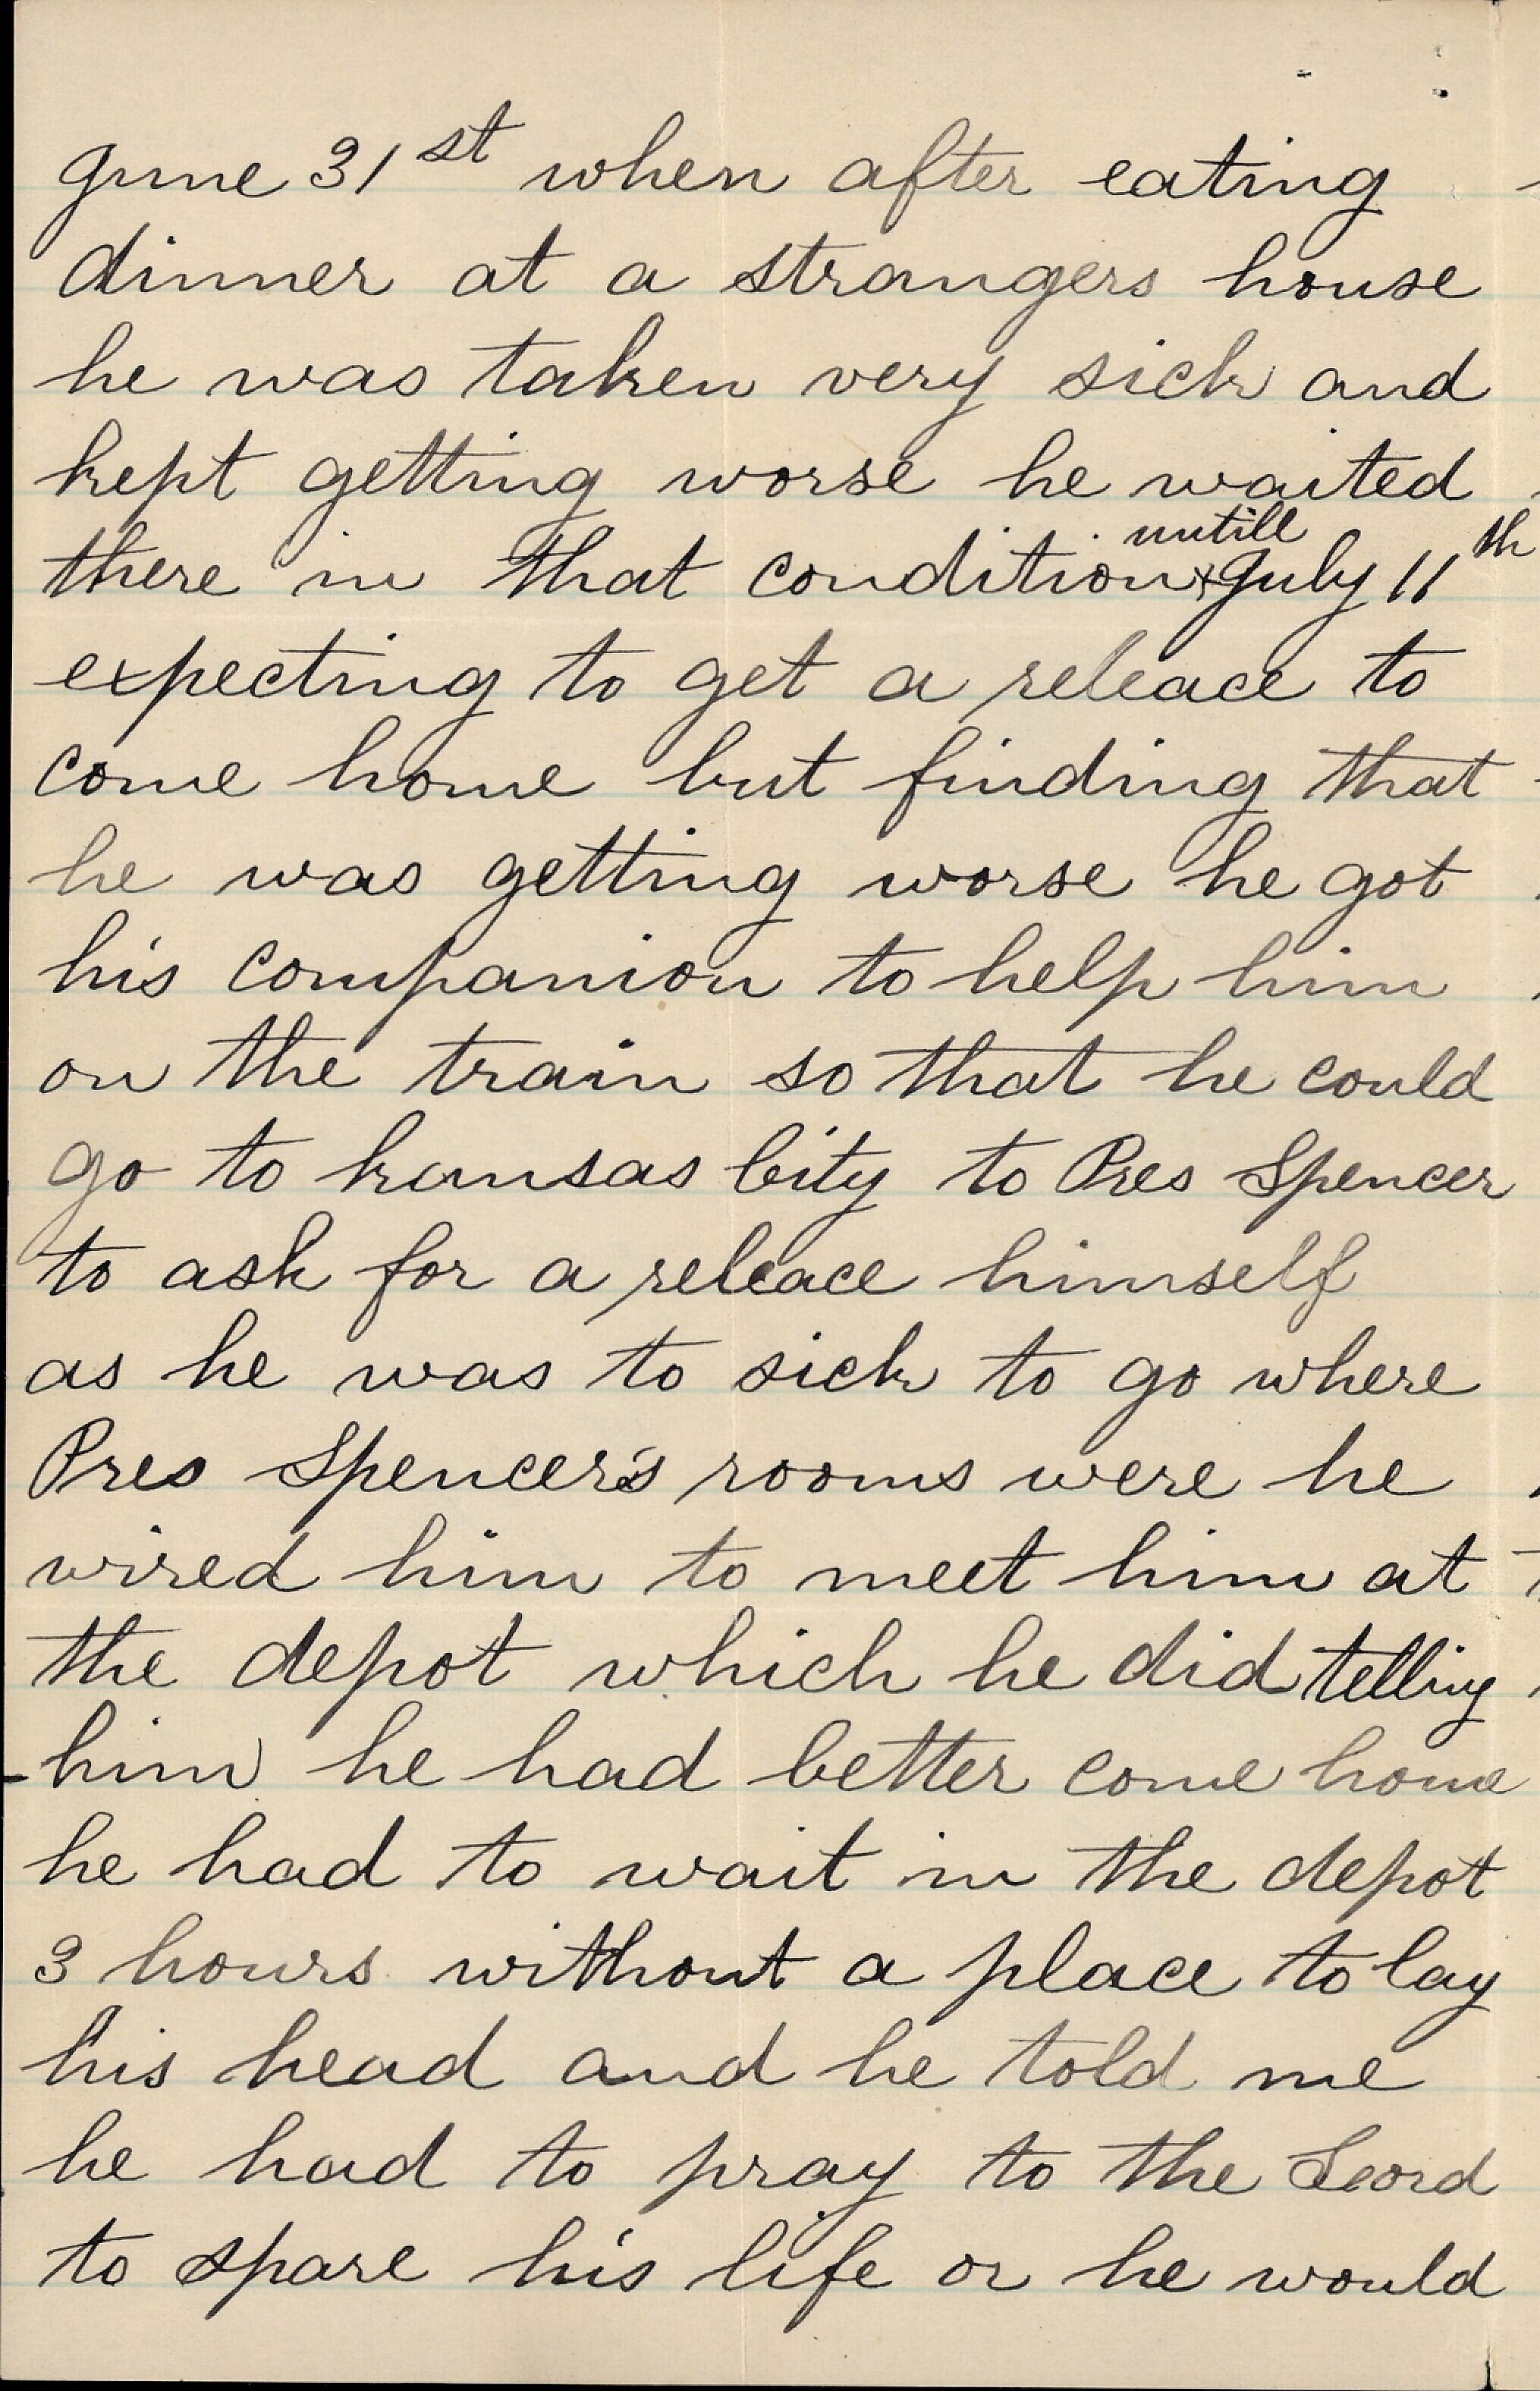 June 31st when after eating
dinner at a strangers house
he was taken very sick and
kept getting worse he waited
untill
there in that condition x July 11th
expecting to get a releace to
come home but finding that
he was getting worse he got
his companion to help him
on the train so that he could
go to kansas City to Pres Spencer
to ask for a releace himself
as he was to sick to go where
Pres Spencer's rooms were he
wired him to meet him at
the depot which he did telling
him he had better come home
he had to wait in the depot
3 hours without a place to lay
his head and he told me
he had to pray to the Lord
to spare his life or he would